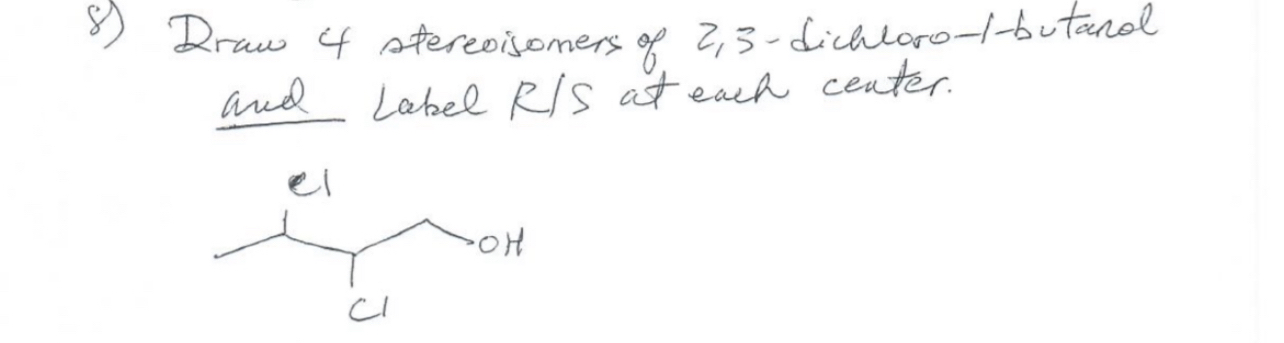 8) Draw 4 stereoisomers of 2,3-dichloro-1-butanol
and Label R/S at each center.
Cl
OH
Cl